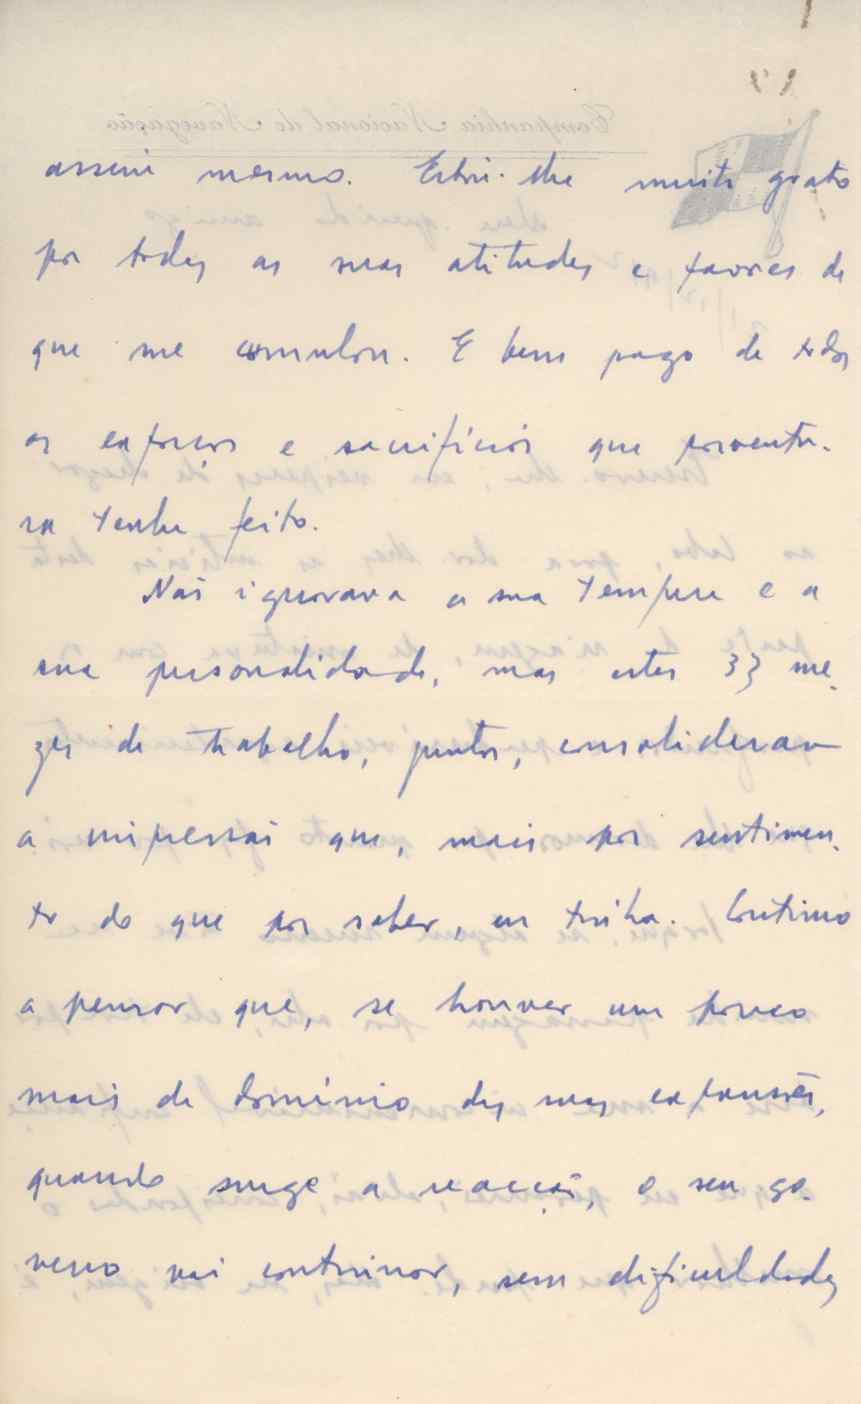 Companhia Nacional de Navegação
assim mesmo. Estou-lhe muito grato
por todas as suas atitudes e favores de
que me cumulou. E bem pago de todos
os esforços e sacrifícios que porventu-
ra tenha feito.
Não ignorava a sua tempera e a
sua personalidade, mas estes 33 me-
zes de trabalho, juntos, consolidaram
a impressão que, mais por sentimen-
to do que por saber, eu tinha. Continuo
a pensar que, se houver um pouco
mais de domínio das suas expansões,
quando surge a reacção, o seu go-
verno vai continuar, sem dificuldades